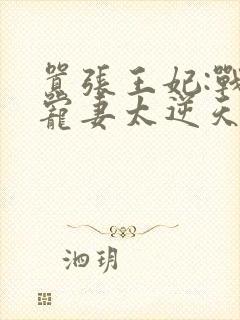 囂張王妃:戰
寵妻太逆天
泗玥